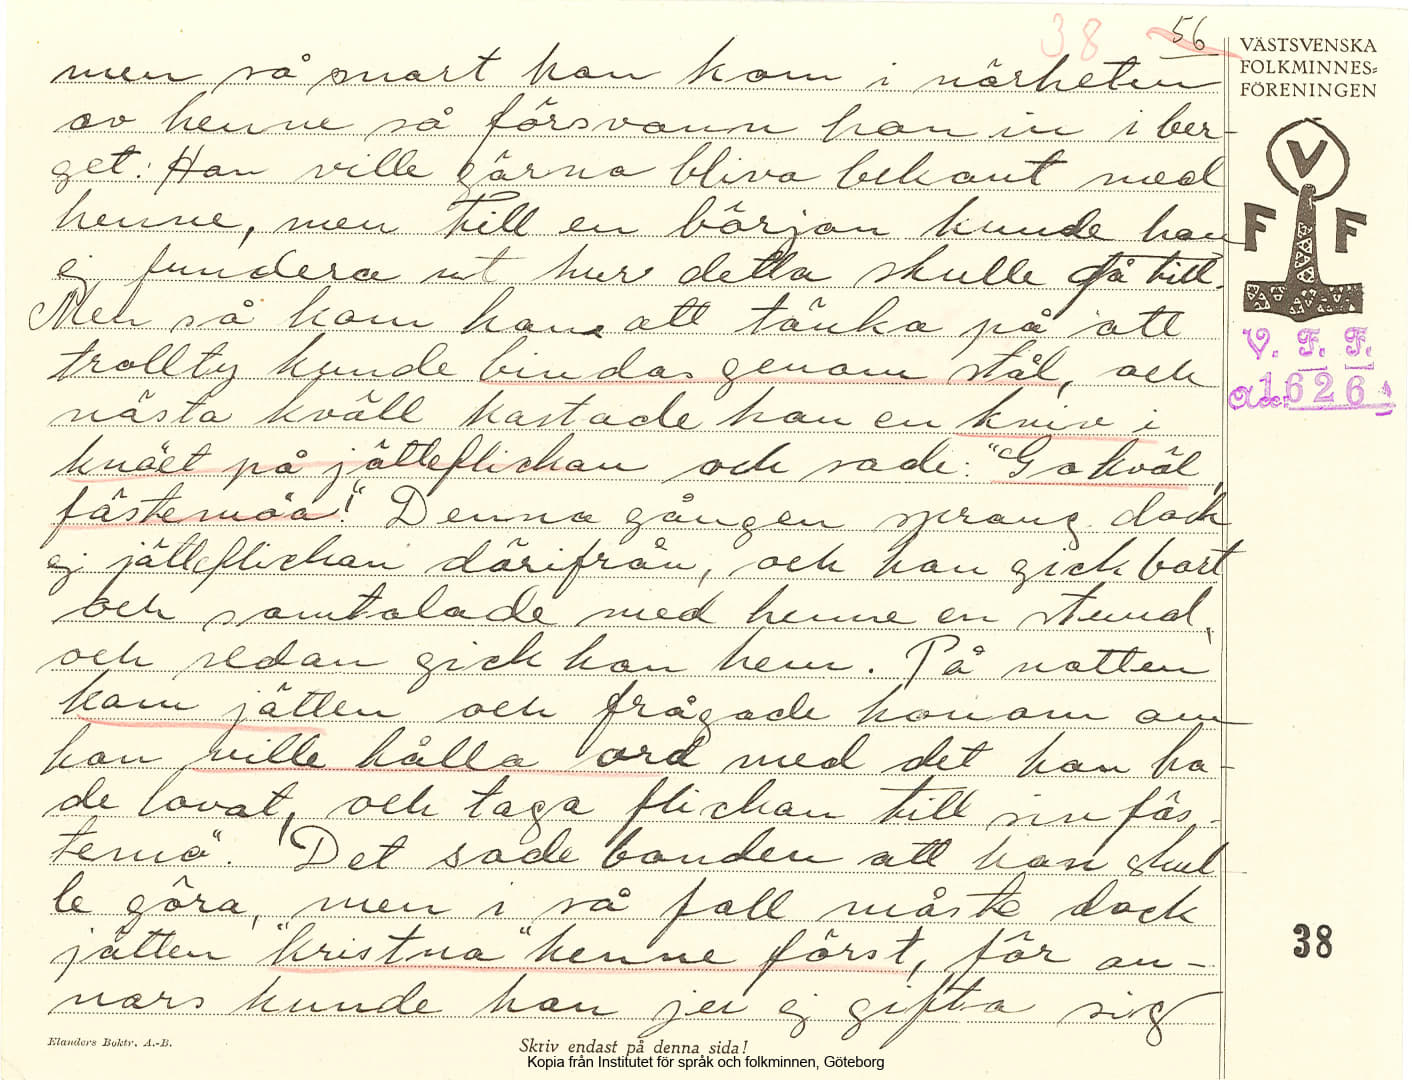 38 56
VÄSTSVENSKA
FOLKMINNES=
FÖRENINGEN
V
F F
V. F. F.
1626
men så snart han kom i närheten
av henne så försvann hon in i ber-
get. Han ville gärna bliva bekant med
henne, men till en början kunde han
ej fundera ut huru detta skulle gå till.
Men så kom han att tänka på att
trollty kunde bindas genom stål, och
nästa kväll kastade han en kniv i
knäet på jätteflickan och sade: "Go kväl,
fästemöa!" Denna gången sprang dock
ej jätteflickan därifrån, och han gick bort
och samtalade med henne en stund,
och sedan gick han hem. På natten
kom jätten och frågade honom om
han ville hålla ord med det han ha-
de lovat, och taga flickan till sin fäs-
temö". Det sade bonden att han skul
le göra, men i så fall måste dock
jätten "kristna" henne först, för an-
nars kunde han jeu ej gifta sig
38
Elanders Boktr. A.-B.
Skriv endast på denna sida!
Kopia från Institutet för språk och folkminnen, Göteborg